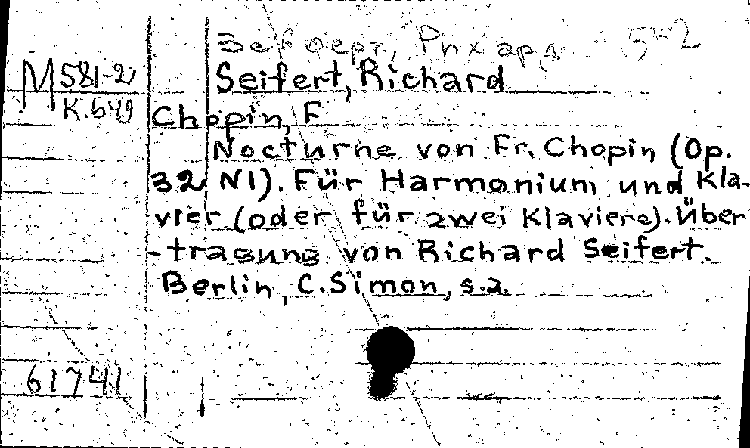 Зейферт, Рихард 542
M 581-2
Seifert, Richard
K.649
Chopin, F
Nocturne von Fr. Chopin (Op.
32 N1). Für Harmonium und Kla-
vier (oder für zwei Klaviere). Über
-tragung von Richard Seifert.
Berlin, C. Simon, s.a.
61741